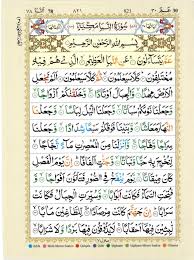 سُوْرَةُ النَّبَاِ مَكِّيَّةٌ
بِسْمِ اللّٰهِ الرَّحْمٰنِ الرَّحِيْمِ
عَمَّ يَتَسَآءَلُوْنَ عَنِ النَّبَاِ الْعَظِيْمِ الَّذِيْ هُمْ فِيْهِ
مُخْتَلِفُوْنَ كَلَّا سَيَعْلَمُوْنَ ثُمَّ كَلَّا سَيَعْلَمُوْنَ اَلَمْ نَجْعَلِ
الْاَرْضَ مِهٰدًا وَّالْجِبَالَ اَوْتَادًا وَّخَلَقْنٰكُمْ اَزْوَاجًا وَّجَعَلْنَا
نَوْمَكُمْ سُبَاتًا وَّجَعَلْنَا الَّيْلَ لِبَاسًا وَّجَعَلْنَا النَّهَارَ
مَعَاشًا وَّبَنَيْنَا فَوْقَكُمْ سَبْعًا شِدَادًا وَّجَعَلْنَا سِرَاجًا
وَّهَّاجًا وَّاَنْزَلْنَا مِنَ الْمُعْصِرٰتِ مَآءً ثَجَّاجًا لِّنُخْرِجَ بِهٖ
حَبًّا وَّنَبَاتًا وَّجَنّٰتٍ اَلْفَافًا اِنَّ يَوْمَ الْفَصْلِ كَانَ
مِيْقَاتًا يَّوْمَ يُنْفَخُ فِي الصُّوْرِ فَتَاْتُوْنَ اَفْوَاجًا وَّفُتِحَتِ
السَّمَآءُ فَكَانَتْ اَبْوَابًا وَّسُيِّرَتِ الْجِبَالُ فَكَانَتْ
سَرَابًا اِنَّ جَهَنَّمَ كَانَتْ مِرْصَادًا لِّلطَّاغِيْنَ مَاٰبًا
لّٰبِثِيْنَ فِيْهَآ اَحْقَابًا لَا يَذُوْقُوْنَ فِيْهَا بَرْدًا وَّلَا